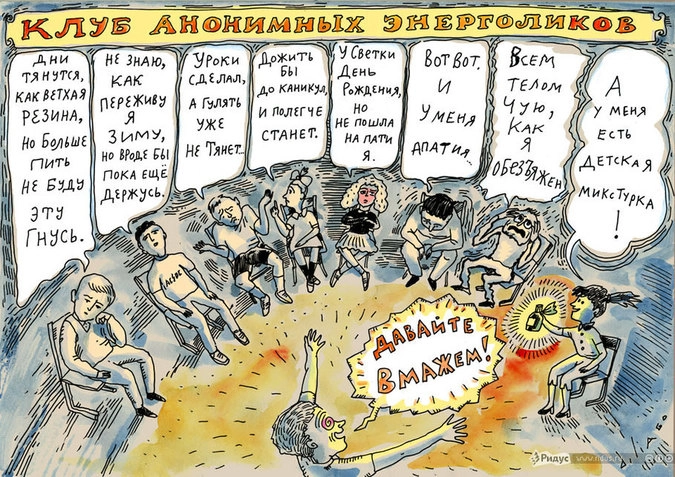 КЛУБ АНОНИМНЫХ ЭНЕРГОЛИКОВ
ДНИ
ТЯНУТСЯ,
КАК ВЕТХАЯ
РЕЗИНА,
НО БОЛЬШЕ
ПИТЬ
НЕ БУДУ
ЭТУ
ГНУСЬ.
НЕ ЗНАЮ,
КАК
ПЕРЕЖИВУ
Я
ЗИМУ,
НО ВРОДЕ БЫ
ПОКА ЕЩЁ
ДЕРЖУСЬ.
УРОКИ
СДЕЛАЛ,
А ГУЛЯТЬ
УЖЕ
НЕ ТЯНЕТ...
ДОЖИТЬ
БЫ
ДО КАНИКУЛ,
И ПОЛЕГЧЕ
СТАНЕТ.
У СВЕТКИ
ДЕНЬ
РОЖДЕНИЯ,
НО
НЕ ПОШЛА
НА ПАТИ
Я.
ВОТ ВОТ.
И
У МЕНЯ
АПАТИЯ...
ВСЕМ
ТЕЛОМ
ЧУЮ,
КАК
Я
ОБЕЗВОЖЕН
А
У МЕНЯ
ЕСТЬ
ДЕТСКАЯ
МИКСТУРКА
!
ДАВАЙТЕ
ВМАЖЕМ!
AC/DC
Ридус